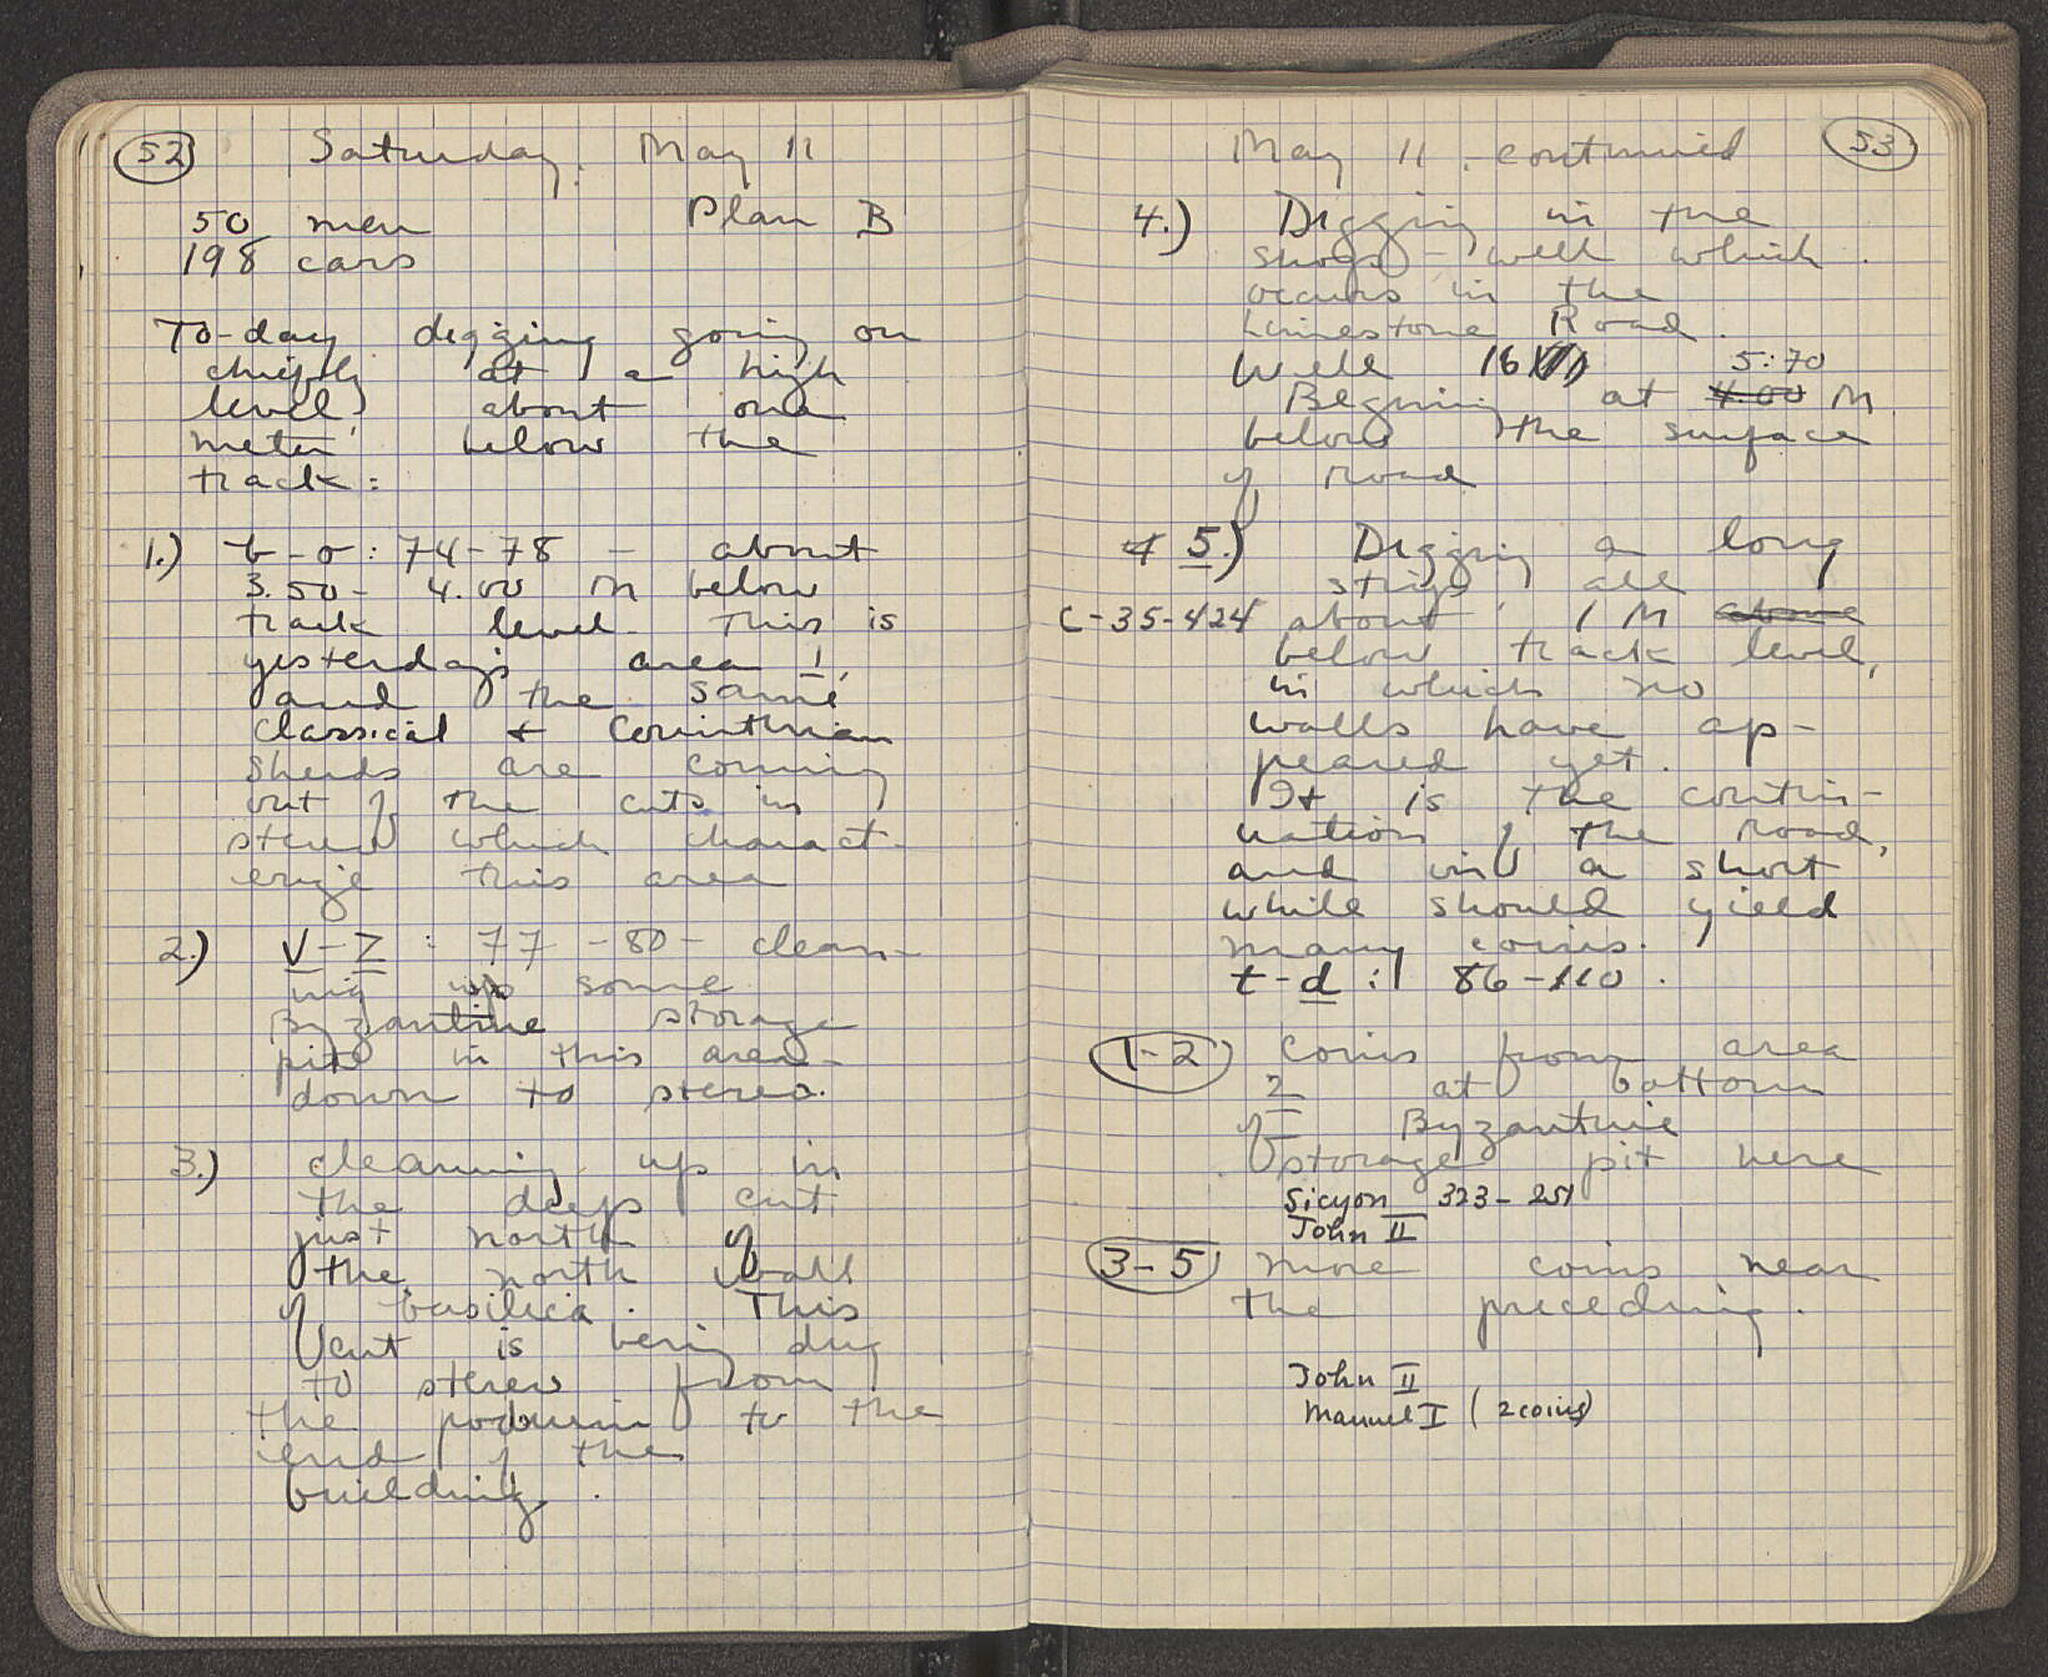 52
Saturday, May 11
50 men Plan B
198 cars
To-day digging going on
chiefly at a high
level, about one
meter below the
track:
1.) b-σ: 74-78 - about
3.50- 4.00 M below
track level. This is
yesterday's area 1,
and the same
classical + Corinthian
sherds are coming
out of the cuts in
stereo which charact-
erize this area
2.) V-Z : 77-80- clean-
ing up some
Byzantine storage
pits in this area-
down to stereo.
3.) cleaning up in
the deep cut
just north of
the north wall
of basilica. This
cut is being dug
to stereo from
the podium to the
end of the
building.
53
May 11, continued
4.) Digging in the
shops - well which
occurs in the
Limestone Road.
Well 16
5:70
Begining at 4.00 M
below the surface
of road
4 5.) Digging a long
strip, all
C-35-424 about 1 M above
below track level,
in which no
walls have ap-
peared yet.
It is the contin-
uation of the road,
and in a short
while should yield
many coins.
t-d: 86-110.
1-2 Coins from area
2 at bottom
of Byzantine
storage pit here
Sicyon 323-251
John II
3-5 more coins near
the preceding.
John II
Manuel I (2 coins)